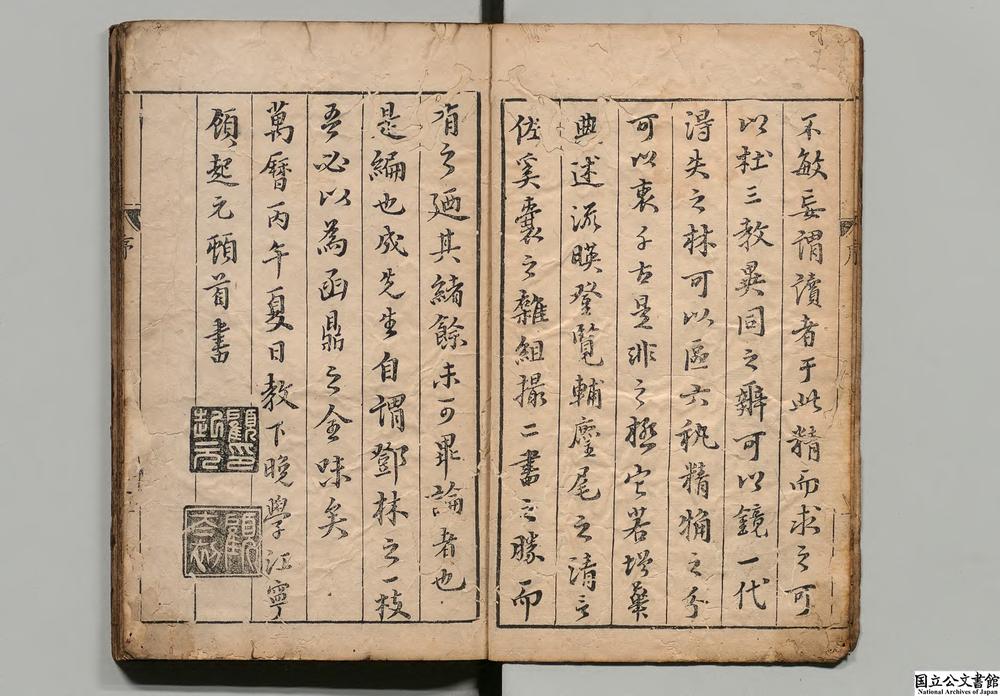 不敏妄謂讀者于此精而求之可
以杜三教異同之辯可以鏡一代
得失之林可以區六執精觕之分
可以衷千古是非之極它若增華
典述流暎登覽輔麈尾之清言
佐奚囊之雜組撮二書之勝而
有之廼其緒餘未可畢論者也
是編也成先生自謂鄧林之一枝
吾必以為函鼎之全味矣
萬曆丙午夏日教下晚學江寧
顧起元頓首書
顧印起元
序
序
国立公文書館
National Archives of Japan